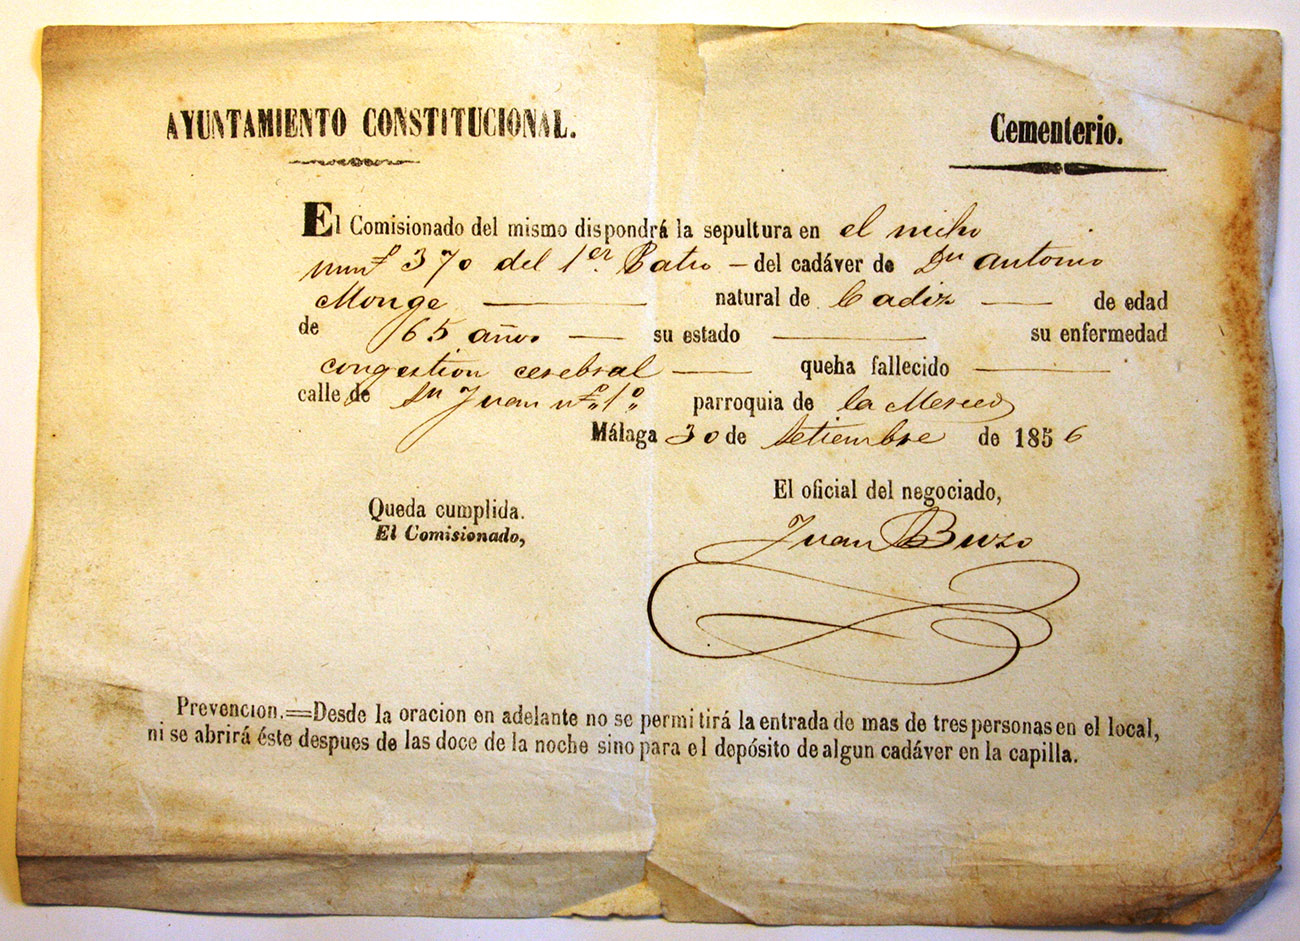 AYUNTAMIENTO CONSTITUCIONAL.
Cementerio.
El Comisionado del mismo dispondrá la sepultura en el nicho
numº 370 del 1er. Patio - del cadáver de Dn Antonio
Monge — natural de Cadiz — de edad
de 65 años — su estado — su enfermedad
congestion cerebral — queha fallecido —
calle de Sn Juan nº. 1º parroquia de la Merced
Málaga 30 de Setiembre de 1856
El oficial del negociado,
Queda cumplida.
El Comisionado,
Juan Buzo
Prevencion.=Desde la oracion en adelante no se permitirá la entrada de mas de tres personas en el local,
ni se abrirá éste despues de las doce de la noche sino para el depósito de algun cadáver en la capilla.